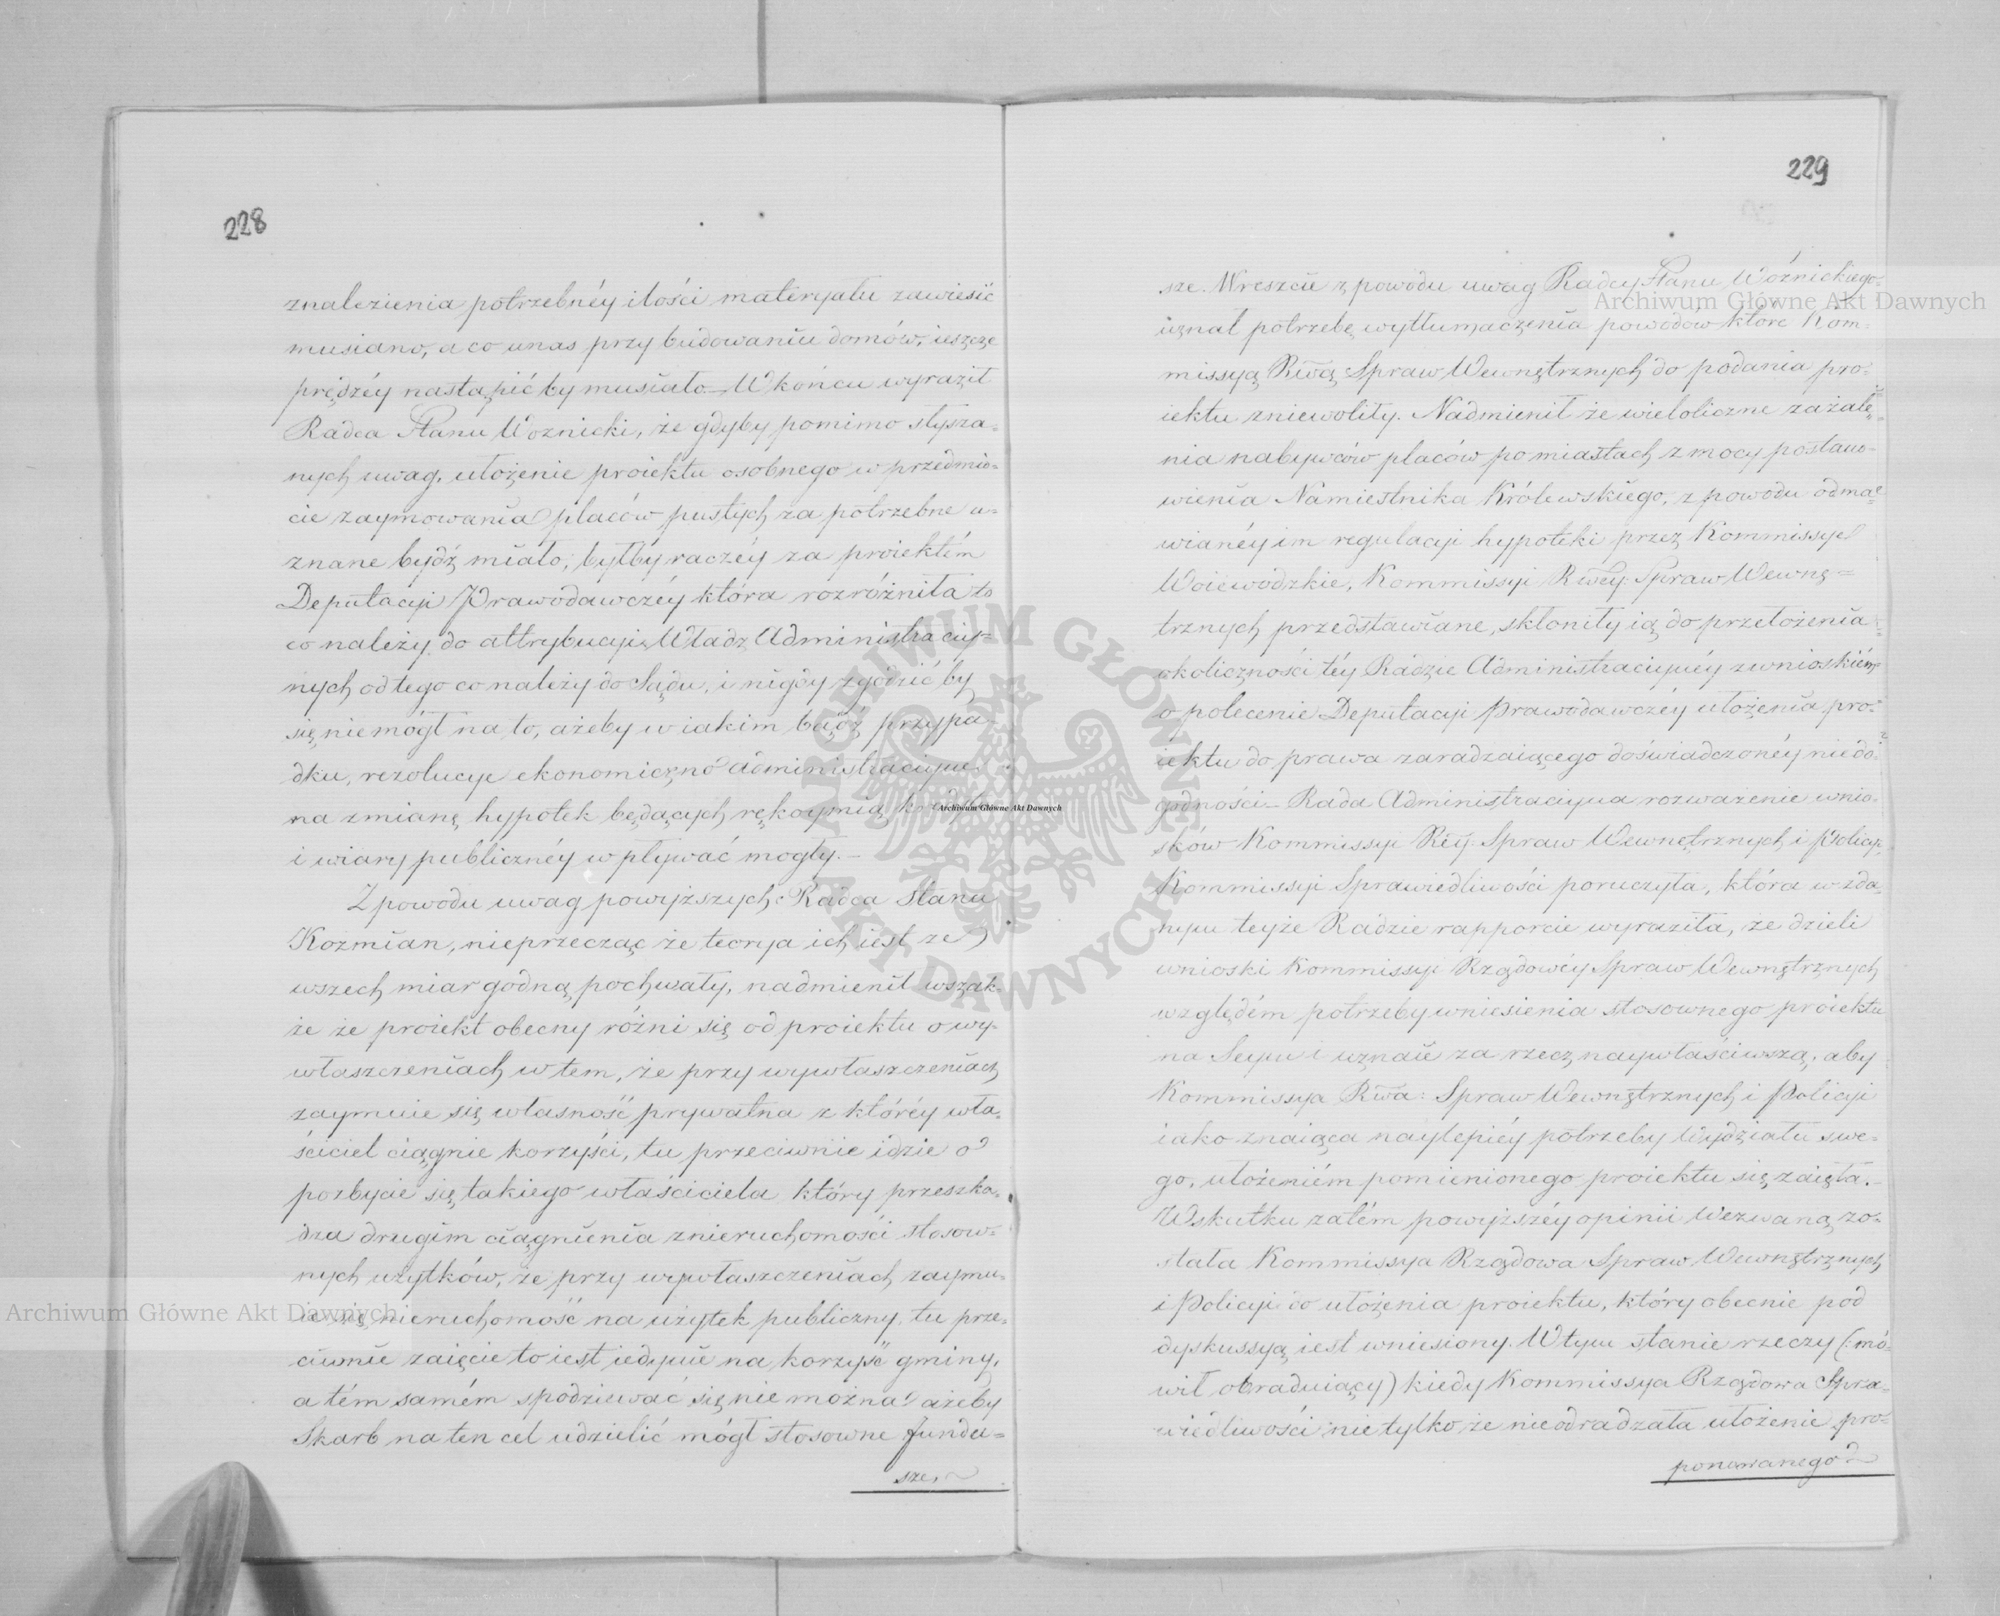 228
znalezienia potrzebnéy ilości materyału zawiesić
musiano, a co u nas przy budowaniu domów, ieszcze
prędzéy nastąpić by musiało. — W końcu wyraził
Radca Stanu Woznicki, że gdyby pomimo słysza=
nych uwag, ułożenie proiektu osobnego w przedmio=
cie zaymowania placów pustych za potrzebne u=
znane bydź miało, byłby raczéy za proiektém
Deputacyi Prawodawczéy która rozróżniła to
co należy do attrybucyi Władz Administracyi=
nych od tego co należy do Sądu, i nigdy zgodzić by
się nie mógł na to, ażeby w iakim bądź przypa=
dku, rezolucye ekonomiczno administracyine
na zmianę hypotek będących rękoymią kredytu
i wiary publicznéy wpływać mogły. —
Z powodu uwag powyższych Radca Stanu
Kozmian, nieprzecząc że teorya ich iest ze
wszech miar godną pochwały, nadmienił wszak=
że że proiekt obecny różni się od proiektu o wy=
właszczeniach w tem, że przy wywłaszczeniach
zaymuie się własność prywatna z któréy wła=
ściciel ciągnie korzyści, tu przeciwnie idzie o
pozbycie się takiego właściciela który przeszka=
dza drugim ciągnienia z nieruchomości stosow=
nych użytków, że przy wywłaszczeniach zaymu=
ie się nieruchomość na użytek publiczny, tu prze=
ciwnie zaięcie to iest iedynie na korzyść gminy,
a tém samém spodziewać się nie można ażeby
Skarb na ten cel udzielić mógł stosowne fundu=
sze,
229
sze. Wreszcie z powodu uwag Radcy Stanu Woźnickiego
uznał potrzebę wytłumaczenia powodów które Kom=
missyą Rwą Spraw Wewnętrznych do podania pro=
iektu zniewoliły. Nadmienił że wieloliczne zażale=
nia nabywców placów po miastach z mocy postano=
wienia Namiestnika Królewskiego, z powodu odma=
wianéy im regulacyi hypoteki przez Kommissye
Woiewodzkie, Kommissyi Rwéy Spraw Wewnę=
trznych przedstawiane, skłoniły ią do przełożenia
okoliczności téy Radzie Administracyinéy z wnioskiém
o polecenie Deputacyi Prawodawczéy ułożenia pro=
iektu do prawa zaradzaiącego doświadczonéy niedo=
godności — Rada Administracyina rozważenie wnio=
sków Kommissyi Réy Spraw Wewnętrznych i Policyi
Kommissyi Sprawiedliwości poruczyła, która w zda=
nym teyże Radzie rapporcie wyraziła, że dzieli
wnioski Kommissyi Rządowéy Spraw Wewnętrznych
względém potrzeby wniesienia stosownego proiektu
na Seym i uznaie za rzecz naywłaściwszą, aby
Kommissya Rwa: Spraw Wewnętrznych i Policyi
iako znaiąca naylepiéy potrzeby Wydziału swe=
go, ułożeniém pomienionego proiektu się zaięła. —
W skutku zatém powyższéy opinii wezwaną zo=
stała Kommissya Rządowa Spraw Wewnętrznych
i Policyi do ułożenia proiektu, który obecnie pod
dyskussyą iest wniesiony. W tym stanie rzeczy (: mó=
wił obraduiący) kiedy Kommissya Rządowa Spra=
wiedliwości nie tylko że nie odradzała ułożenie pro=
ponowanego
Archiwum Główne Akt Dawnych
Archiwum Główne Akt Dawnych
Archiwum Główne Akt Dawnych
ARCHIWUM GŁÓWNE AKT DAWNYCH